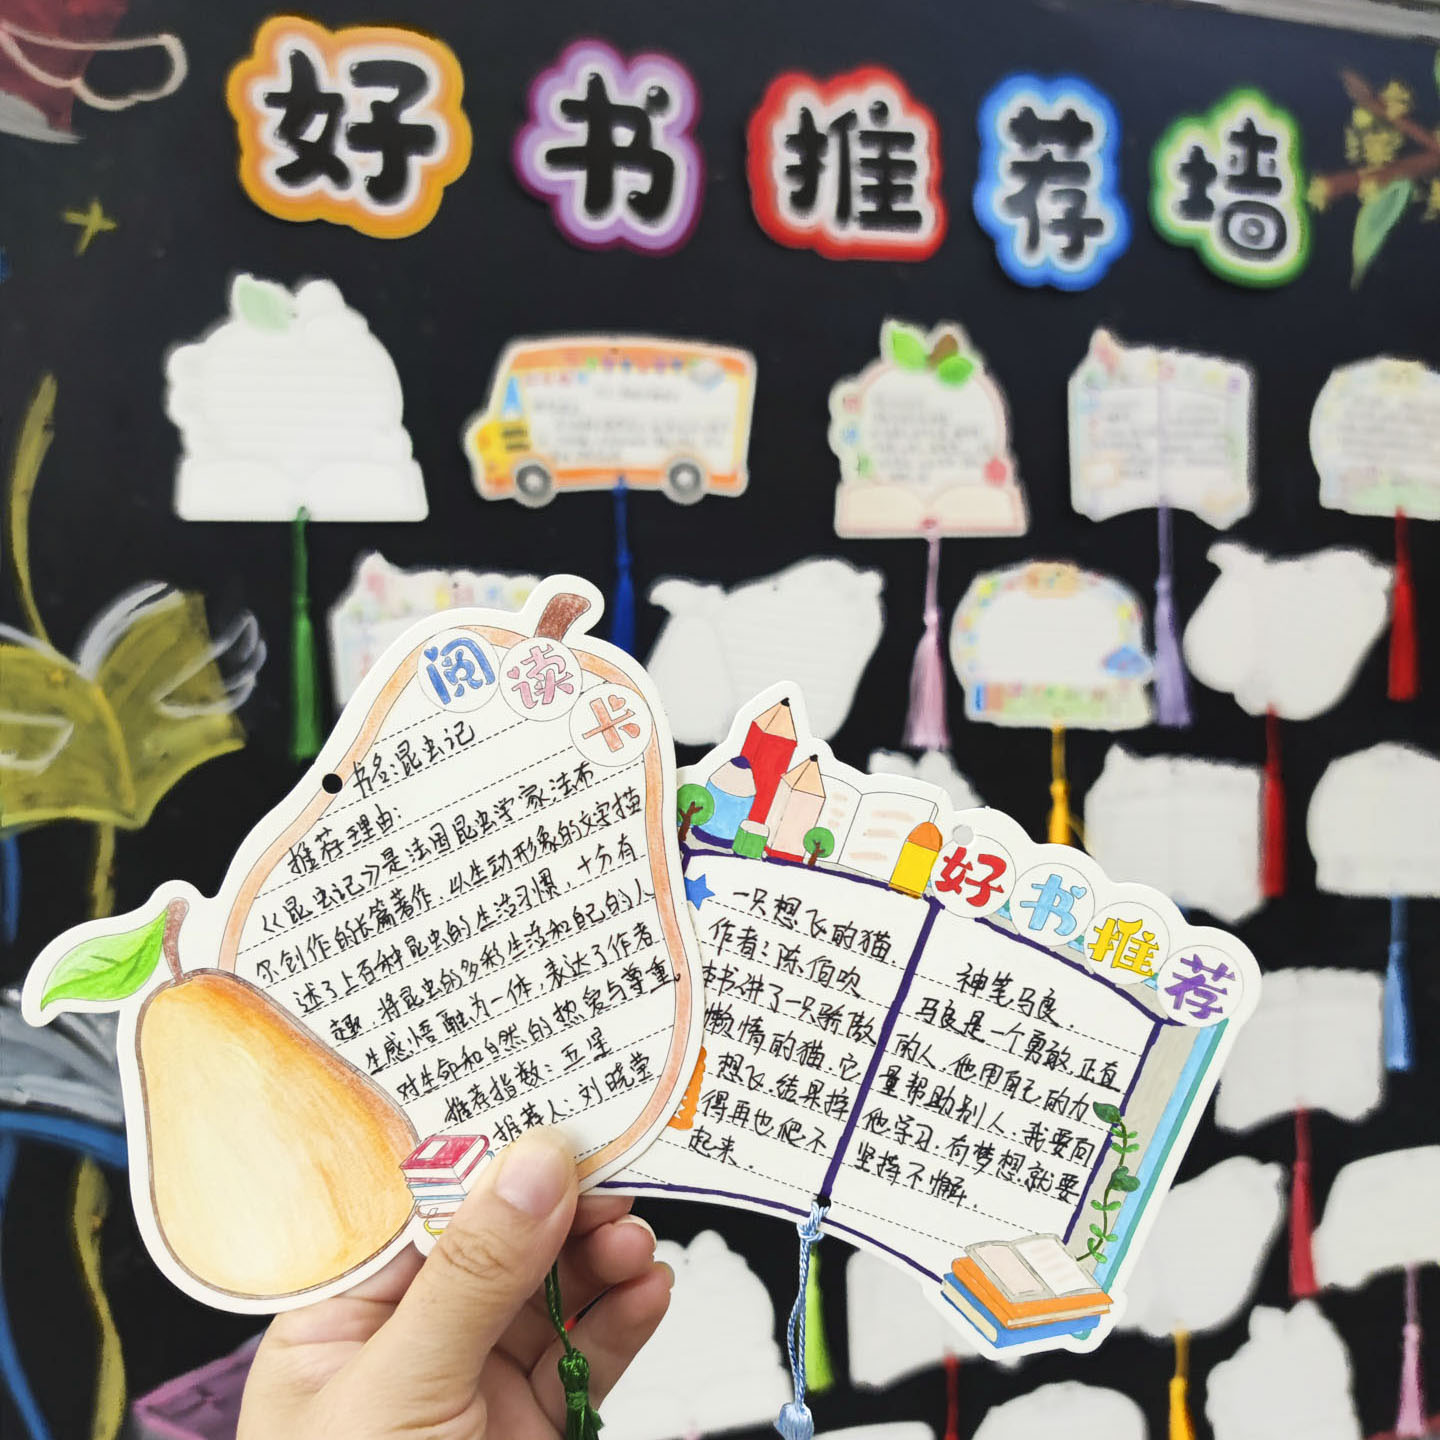 好书推荐墙
阅读卡
书名:昆虫记
推荐理由:
《昆虫记》是法国昆虫学家法布
尔创作的长篇著作,以生动形象的文字描
述了上百种昆虫的生活习惯,十分有
趣,将昆虫的多彩生活和自己的人
生感悟融为一体,表达了作者
对生命和自然的热爱与尊重。
推荐指数:五星
推荐人:刘晓莹
好书推荐
一只想飞的猫.
作者:陈伯吹
本书讲了一只骄傲
懒惰的猫.它
想飞.结果摔
得再也爬不
起来.
神笔马良.
马良是一个勇敢,正直
的人.他用自己的力
量帮助别人.我要向
他学习.有梦想.就要
坚持不懈.